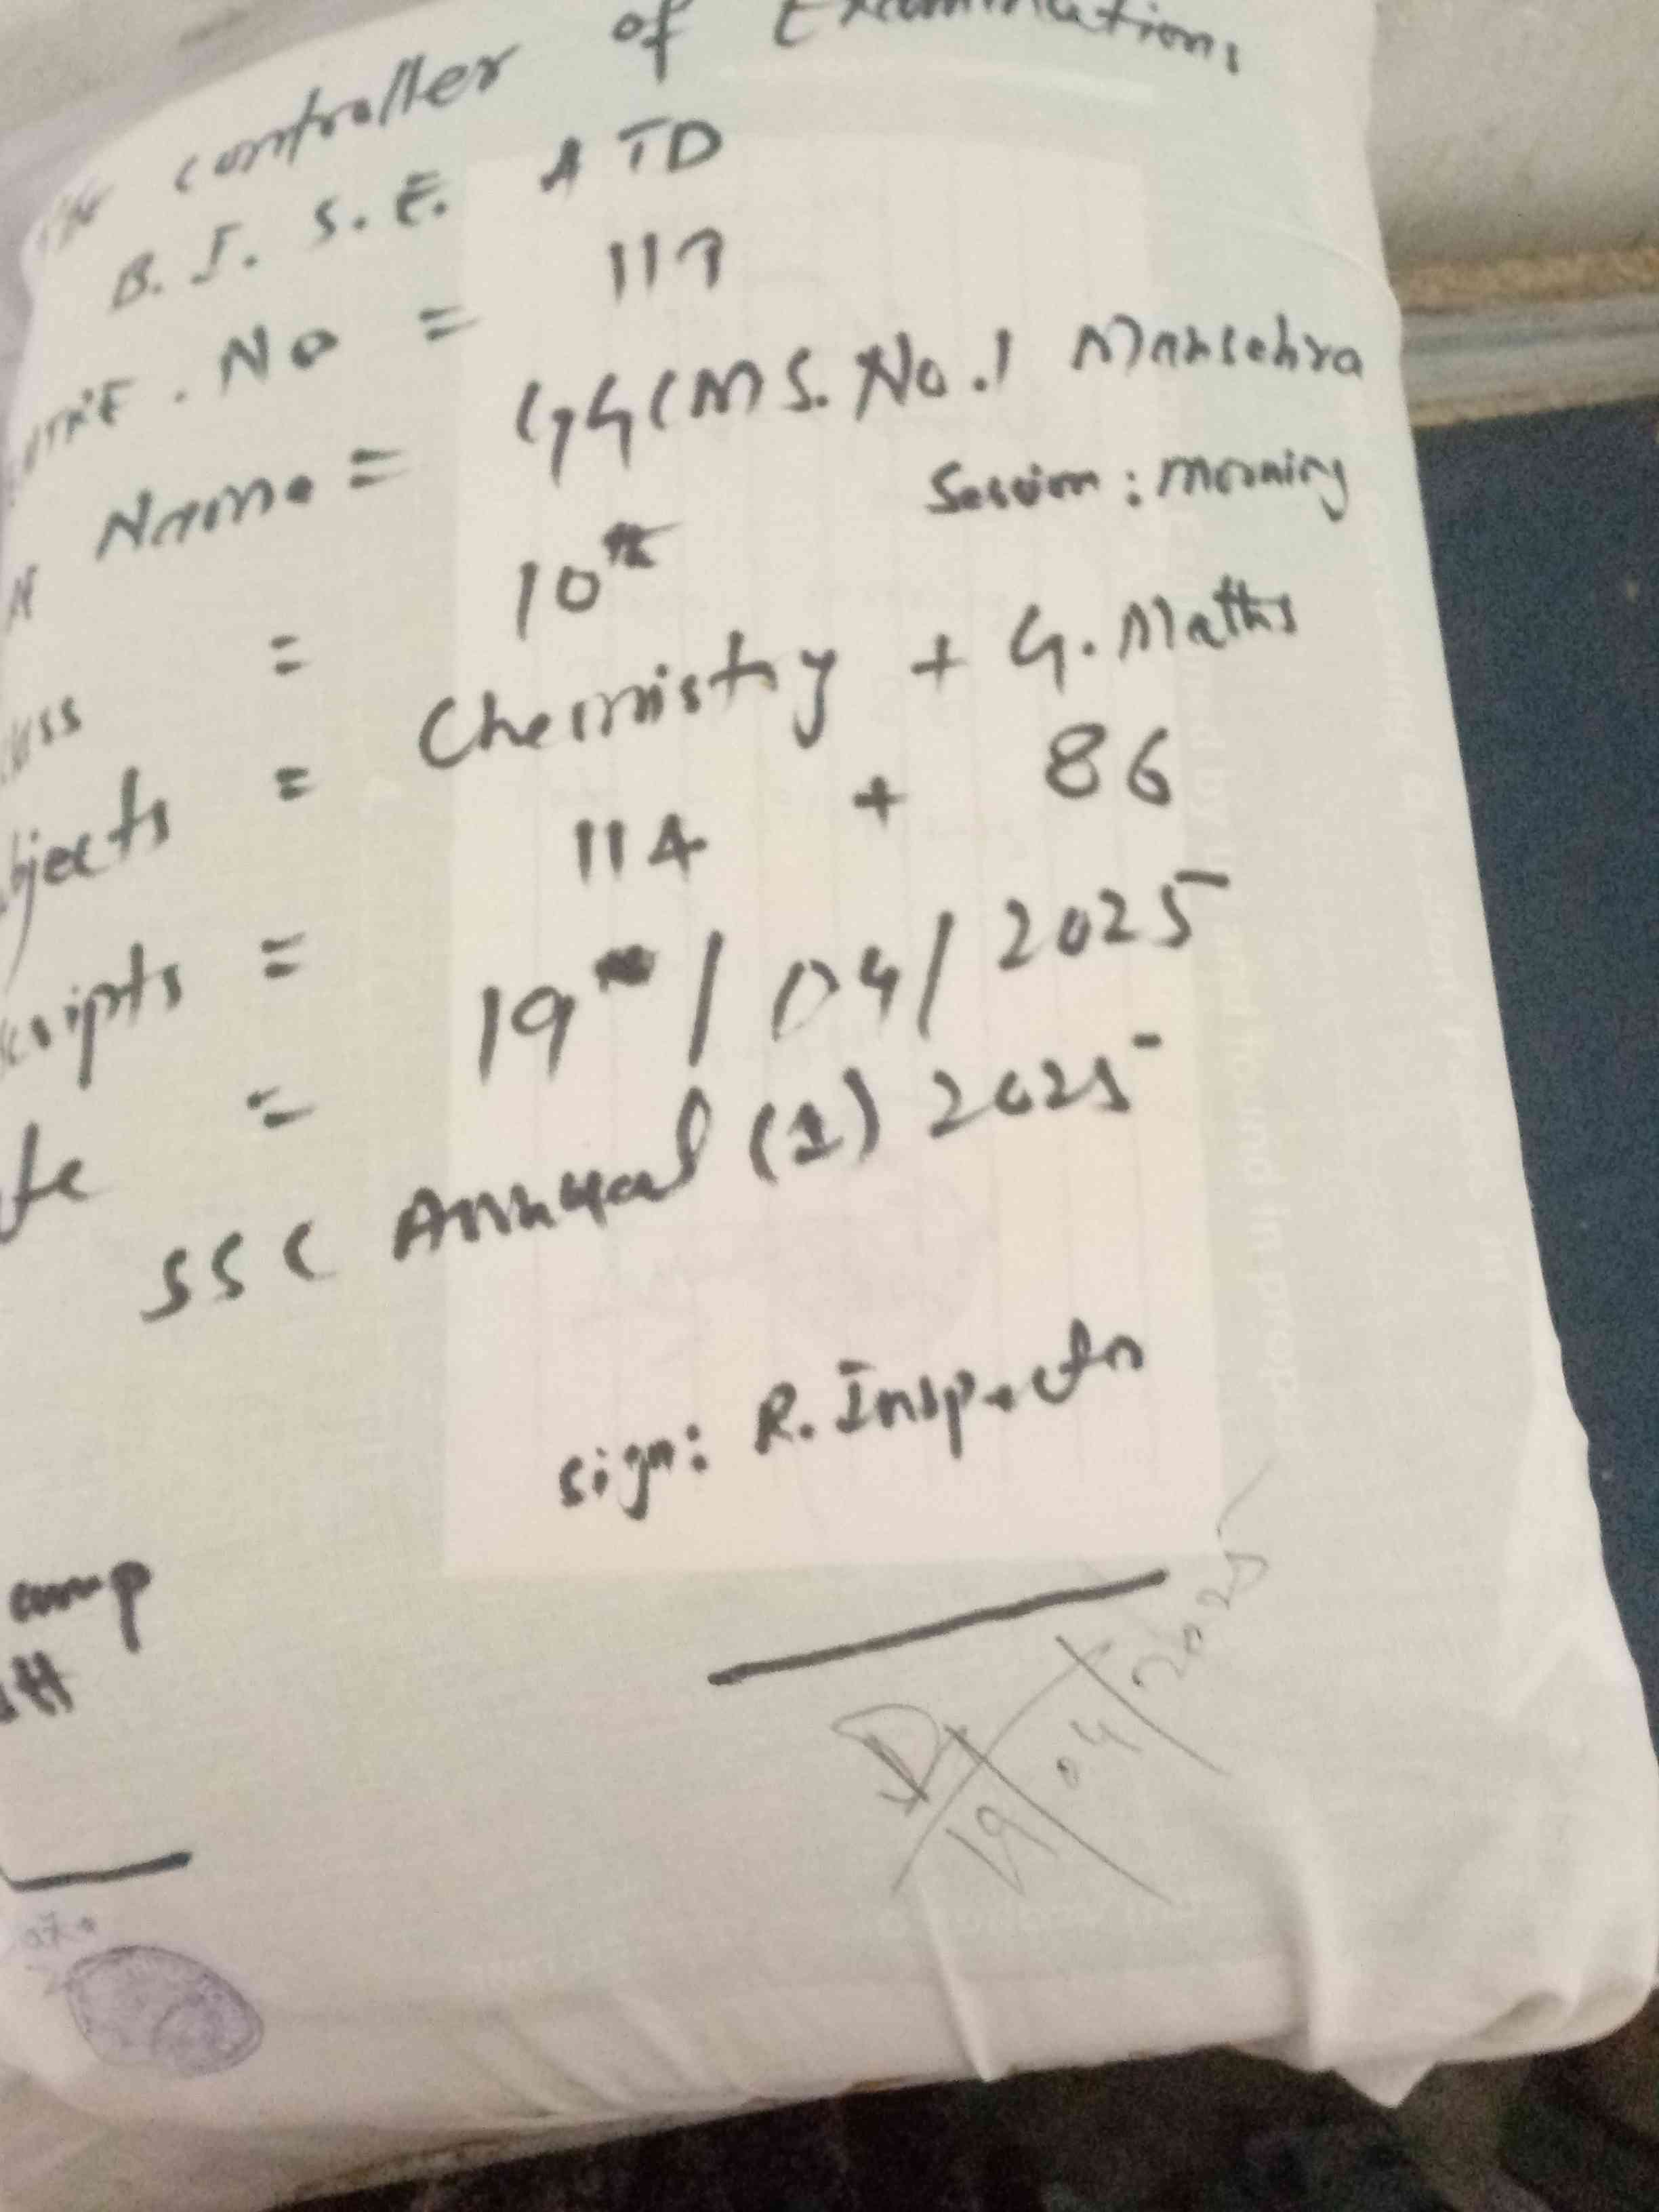 The controller of Examinations
B.I.S.E. ATD
No = 117
Name = GGCMS. No.1 Mansehra
= 10th Session: morning
bjects = Chemistry + G.Maths
cripts = 114 + 86
te = 19th/04/2025
SSC Annual (1) 2025
sign: R.Inspector
19/04/2025